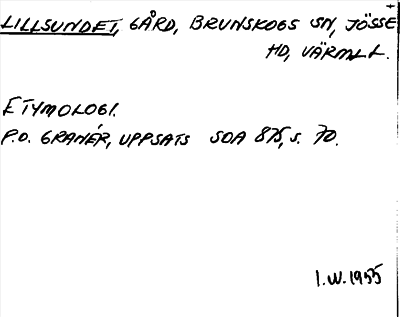 LILLSUNDET, GÅRD, BRUNSKOGS SN, JÖSSE
HD, VÄRML.
ETYMOLOGI.
P.O. GRANÉR, UPPSATS SOA 875, S. 70.
I.W. 1955